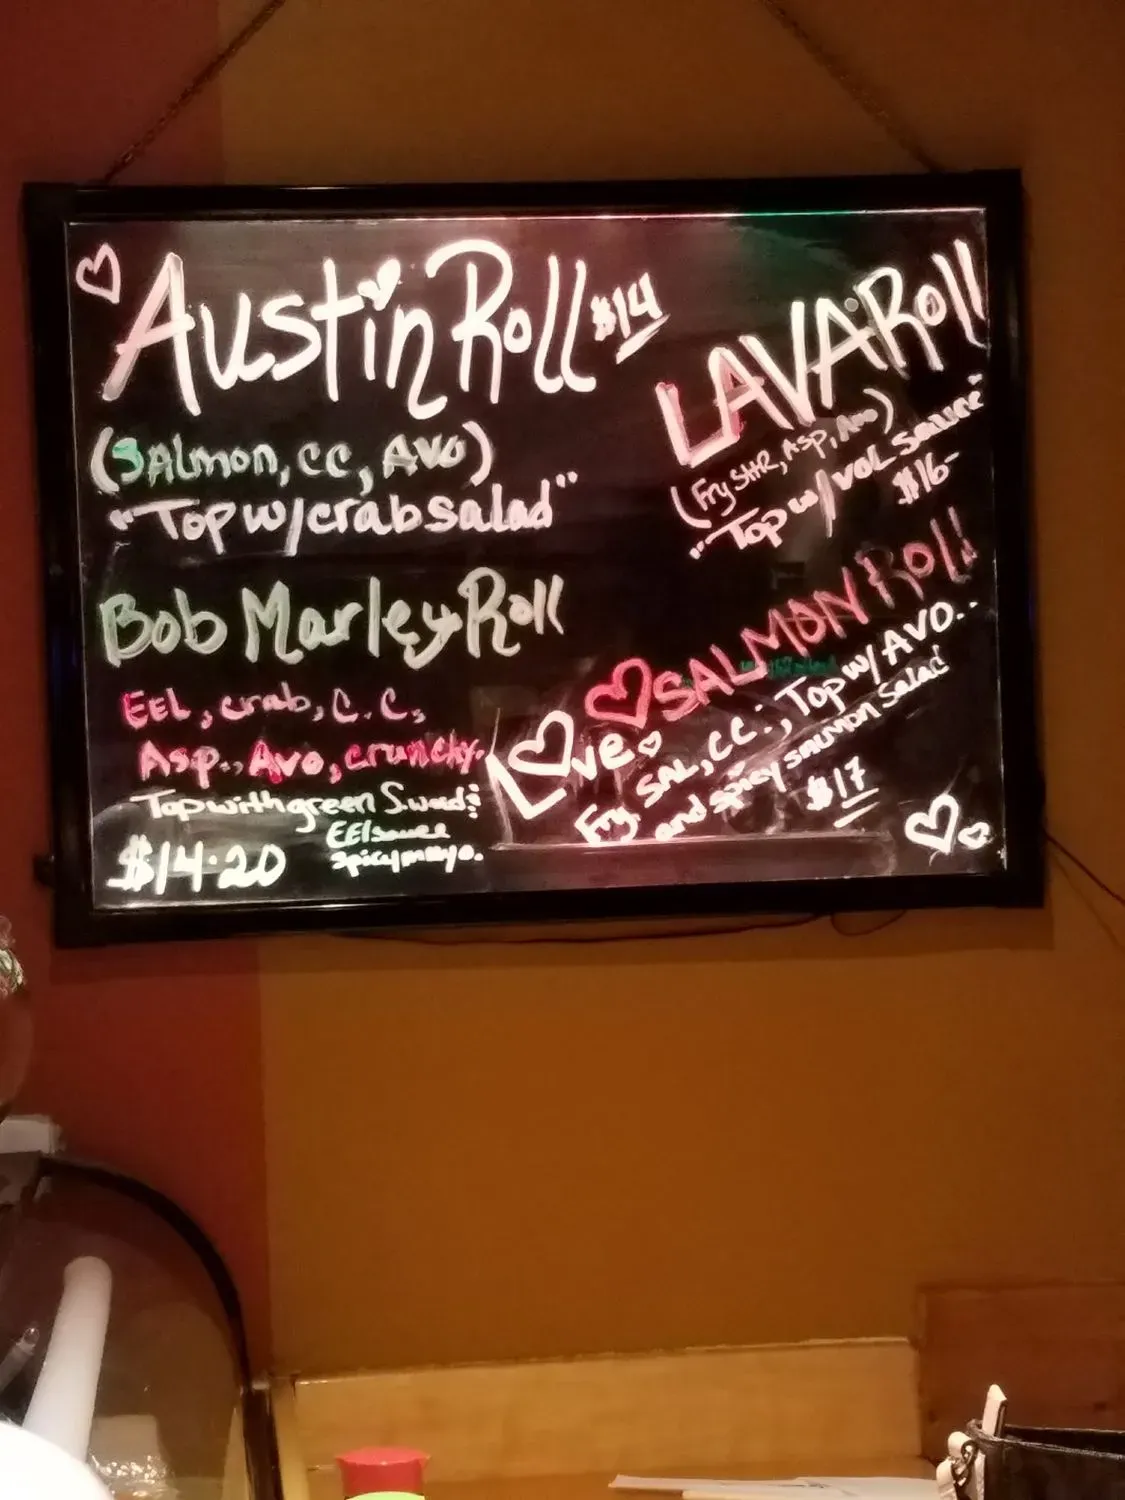 Austin Roll $14
(SAlmon, CC, AVO)
"Top w/crab salad"
Bob Marley Roll
EEL, crab, C.C,
Asp., Avo, crunchy.
Top with green S.weed:
EEl sauce
spicy mayo.
$14.20
LAVA Roll
(Fry SHR, Asp, Avo)
"Top w/ VOL sauce"
$16-
SALMON Roll
Love
Fry. SAL, CC., Top w/ AVO..
and spicy SALMON Salad
$17